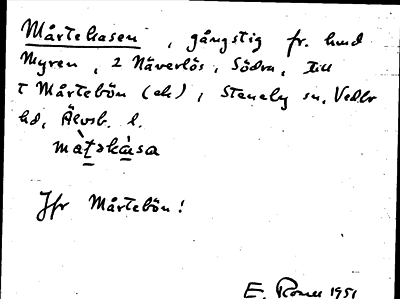 Mårtekasen, gångstig fr. hmd
Myren, 2 Näverlös, Södra, till
t Mårtebön (ek), Steneby sn, Vedbo
hd, Älvsb. l.
Jfr Mårtebön!
E. 1951